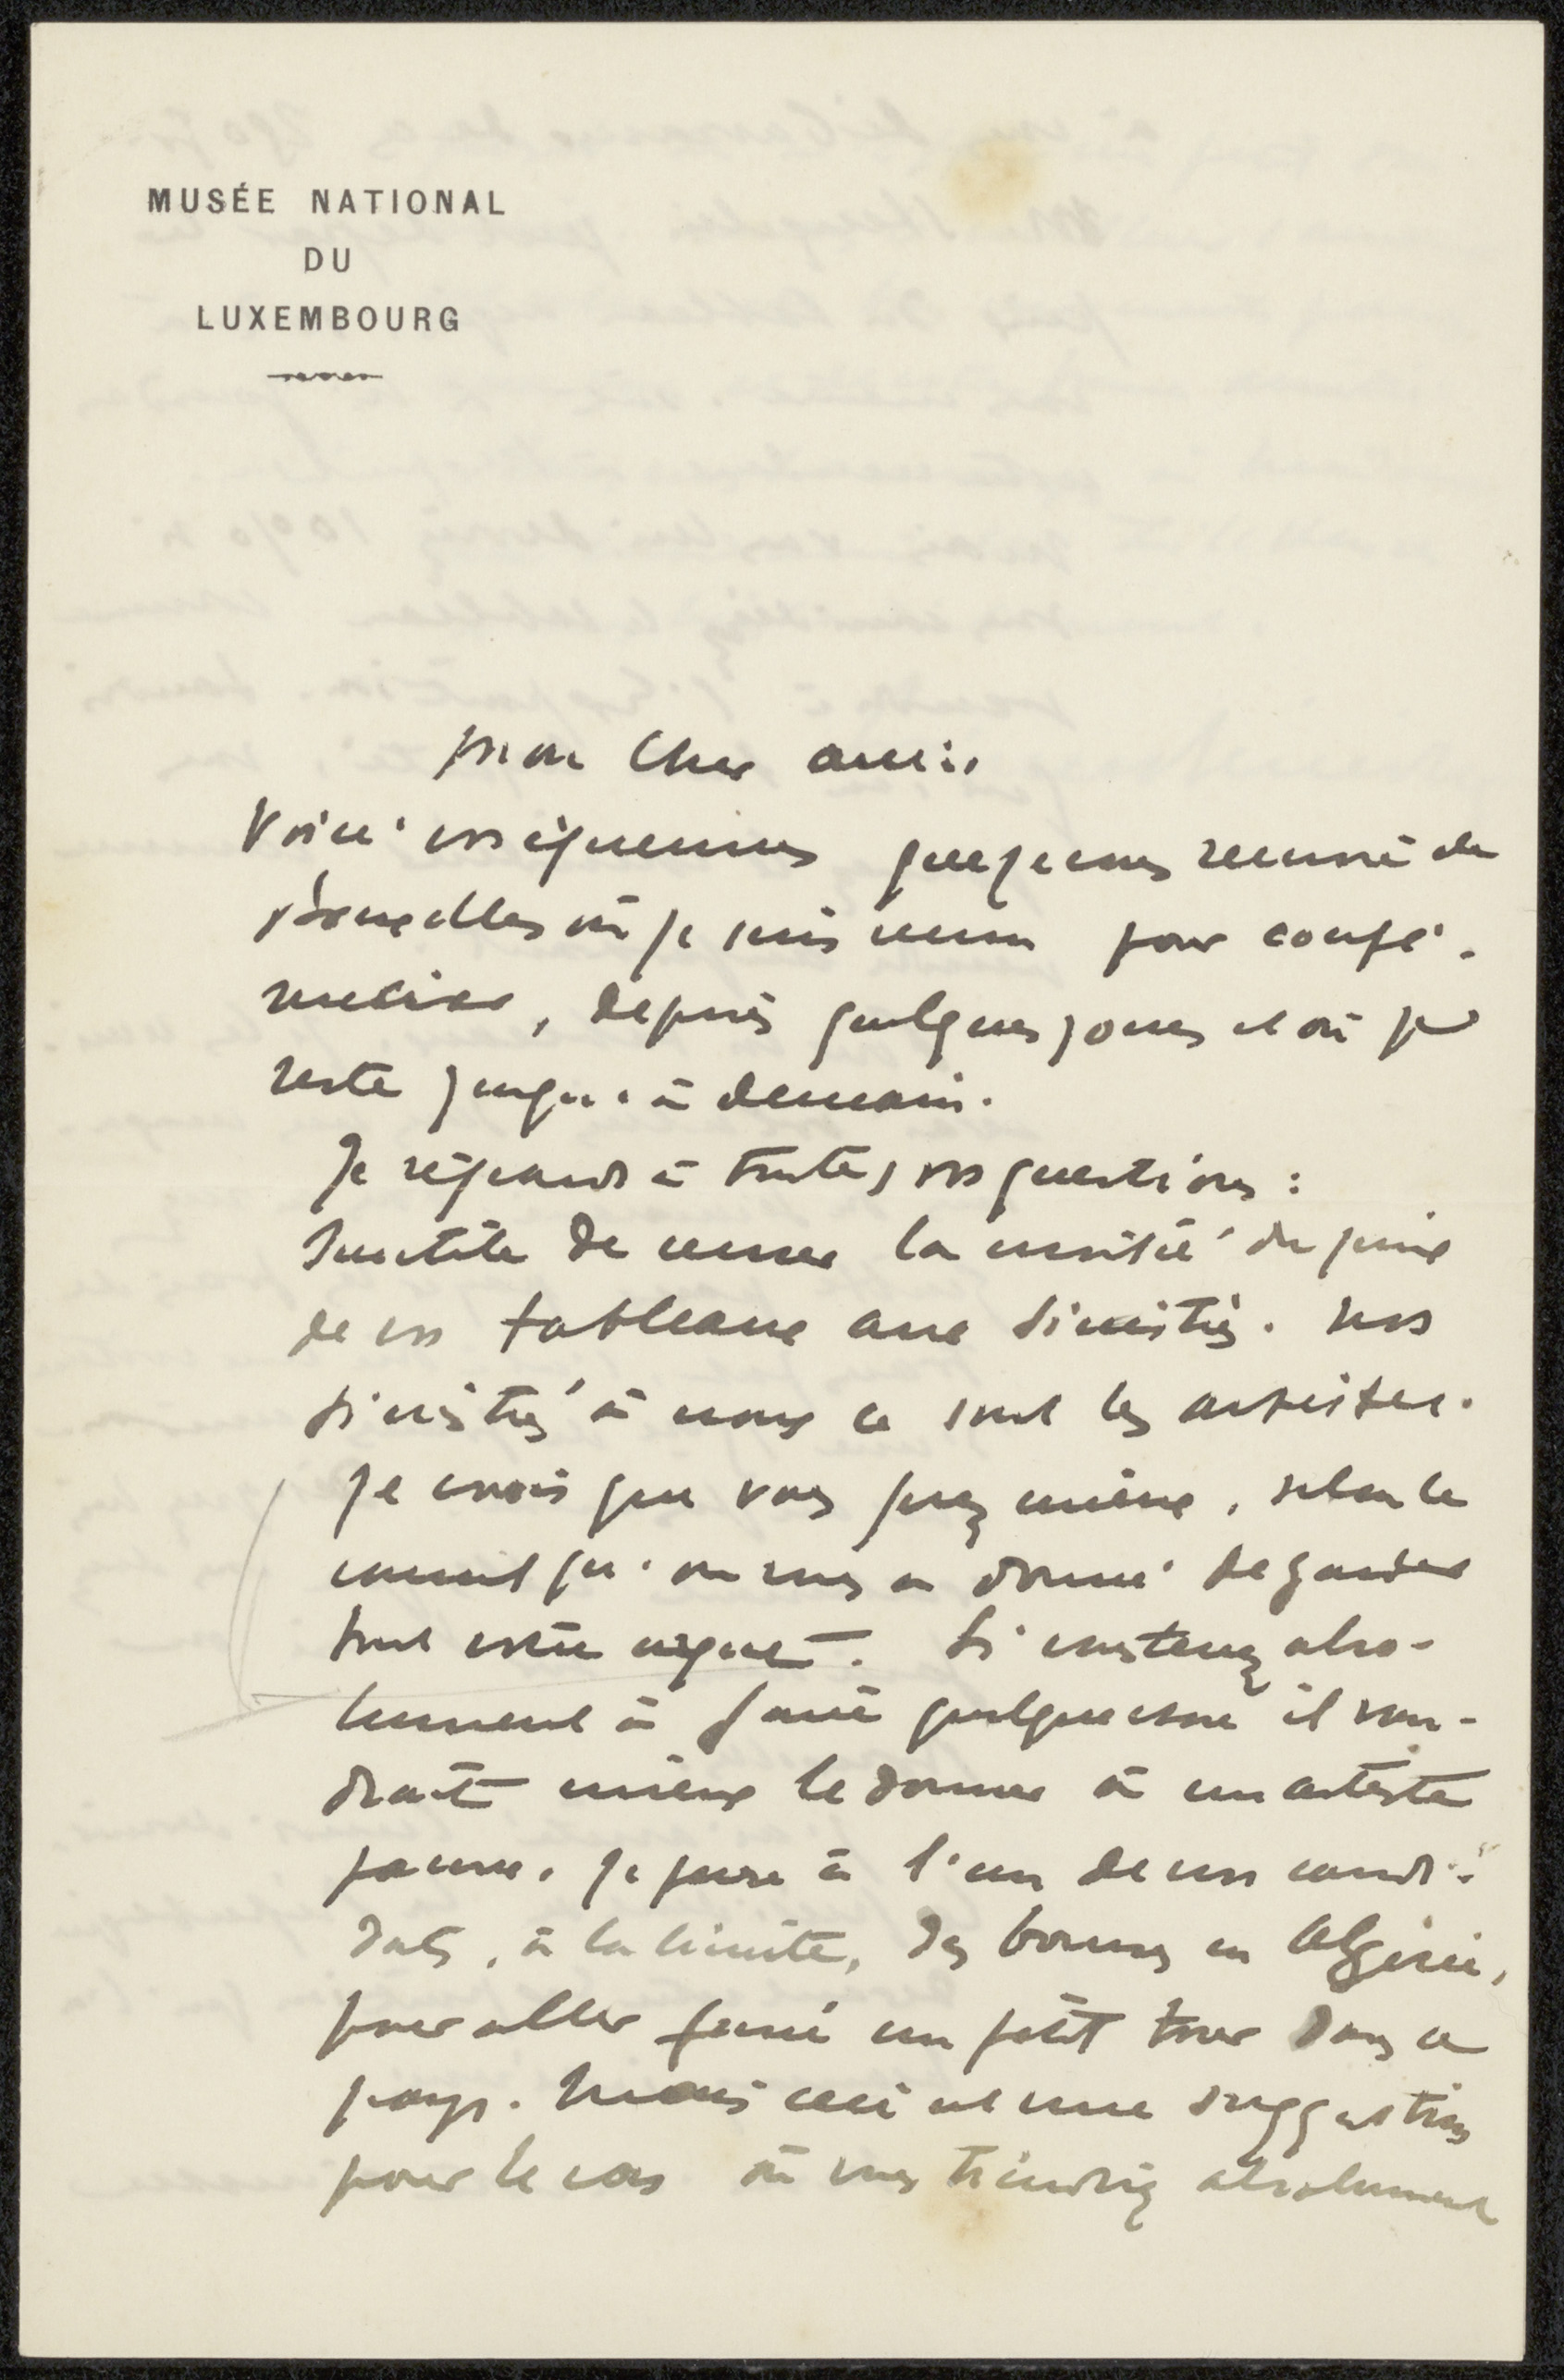 MUSÉE NATIONAL
DU
LUXEMBOURG
Mon cher ami,
Voici vos épreuves que je vous renvoie de
Bruxelles où je suis venu pour confé-
rencier, depuis quelques jours et où je
reste jusqu'à demain.
Je réponds à toutes vos questions :
Inutile de verser la moitié du prix
de vos tableaux aux sinistrés. Nos
sinistrés à nous ce sont les artistes.
Je crois que vous ferez mieux, selon le
conseil qu'on vous a donné de garder
tout votre argent. Si vous tenez abso-
lument à faire quelque chose il vau-
drait mieux le donner à un artiste
pauvre. Je pense à l'un de vos candi-
dats, à la limite, des bourses en Algérie,
pour aller faire un petit tour dans ce
pays. Mais ceci est une suggestion
pour le cas où vous tiendriez absolument